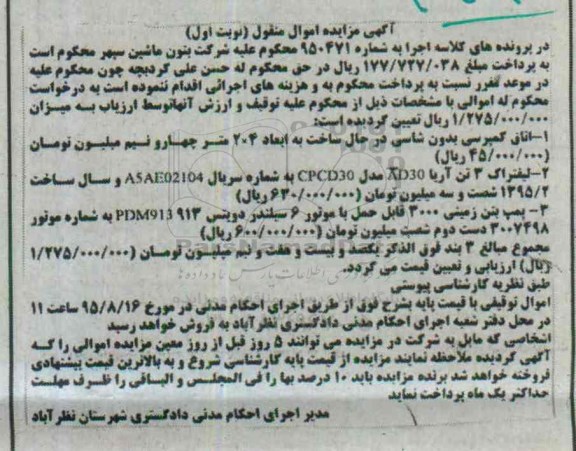 آگهی مزایده اموال منقول (نوبت اول)
در پرونده های کلاسه اجرا به شماره ۹۵۰۴۷۱ محکوم علیه شرکت بتون ماشین سپهر محکوم است
به پرداخت مبلغ ۱۷۷/۷۲۷/۰۳۸ ریال در حق محکوم له حسن علی گردبچه چون محکوم علیه
در موعد مقرر نسبت به پرداخت محکوم به و هزینه های اجرائی اقدام ننموده است به درخواست
محکوم له اموالی با مشخصات ذیل از محکوم علیه توقیف و ارزش آنهاتوسط ارزیاب به میزان
۱/۲۷۵/۰۰۰/۰۰۰ ریال تعیین گردیده است:
۱-اتاق کمپرسی بدون شاسی در حال ساخت به ابعاد ۴×۲ متر چهار و نیم میلیون تومان
(۴۵/۰۰۰/۰۰۰ ریال)
۲-لیفتراک ۳ تن آریا AD30 مدل CPCD30 به شماره سریال A5AE02104 و سال ساخت
۱۳۹۵/۲ شصت و سه میلیون تومان (۶۳۰/۰۰۰/۰۰۰ ریال)
۳- پمپ بتن زمینی ۳۰۰۰ قابل حمل با موتور ۶ سیلندر دویتس ۹۱۳ PDM913 به شماره موتور
۳۰۰۷۴۹۸ دست دوم شصت میلیون تومان (۶۰۰/۰۰۰/۰۰۰ ریال)
مجموع مبالغ ۳ بند فوق الذکر یکصد و بیست و هفت و نیم میلیون تومان (۱/۲۷۵/۰۰۰/۰۰۰
ریال) ارزیابی و تعیین قیمت می گردد.
طبق نظریه کارشناسی پیوستی
اموال توقیفی با قیمت پایه بشرح فوق از طریق اجرای احکام مدنی در مورخ ۹۵/۸/۱۶ ساعت ۱۱
در محل دفتر شعبه اجرای احکام مدنی دادگستری نظرآباد به فروش خواهد رسید
اشخاصی که مایل به شرکت در مزایده می توانند ۵ روز قبل از روز معین مزایده اموالی را که
آگهی گردیده ملاحظه نمایند مزایده از قیمت پایه کارشناسی شروع و به بالاترین قیمت پیشنهادی
فروخته خواهد شد برنده مزایده باید ۱۰ درصد بها را فی المجلس و الباقی را ظرف مهلت
حداکثر یک ماه پرداخت نماید
مدیر اجرای احکام مدنی دادگستری شهرستان نظرآباد